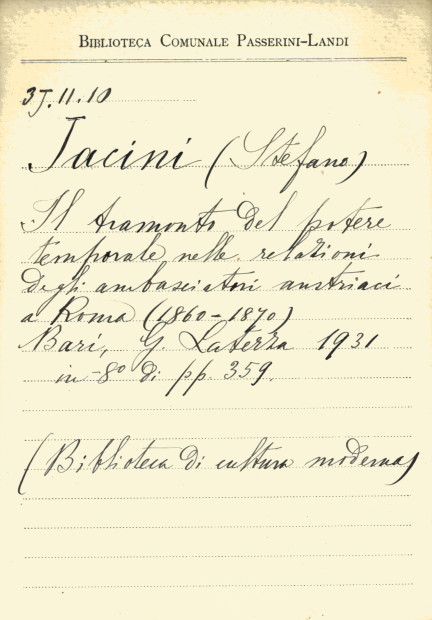 BIBLIOTECA COMUNALE PASSERINI-LANDI
3J.11.10
Jacini (Stefano)
Il tramonto del potere
temporale nelle relazioni
degli ambasciatori austriaci
a Roma (1860-1870)
Bari, G. Laterza 1931
in-8º di pp. 359.
(Biblioteca di cultura moderna)